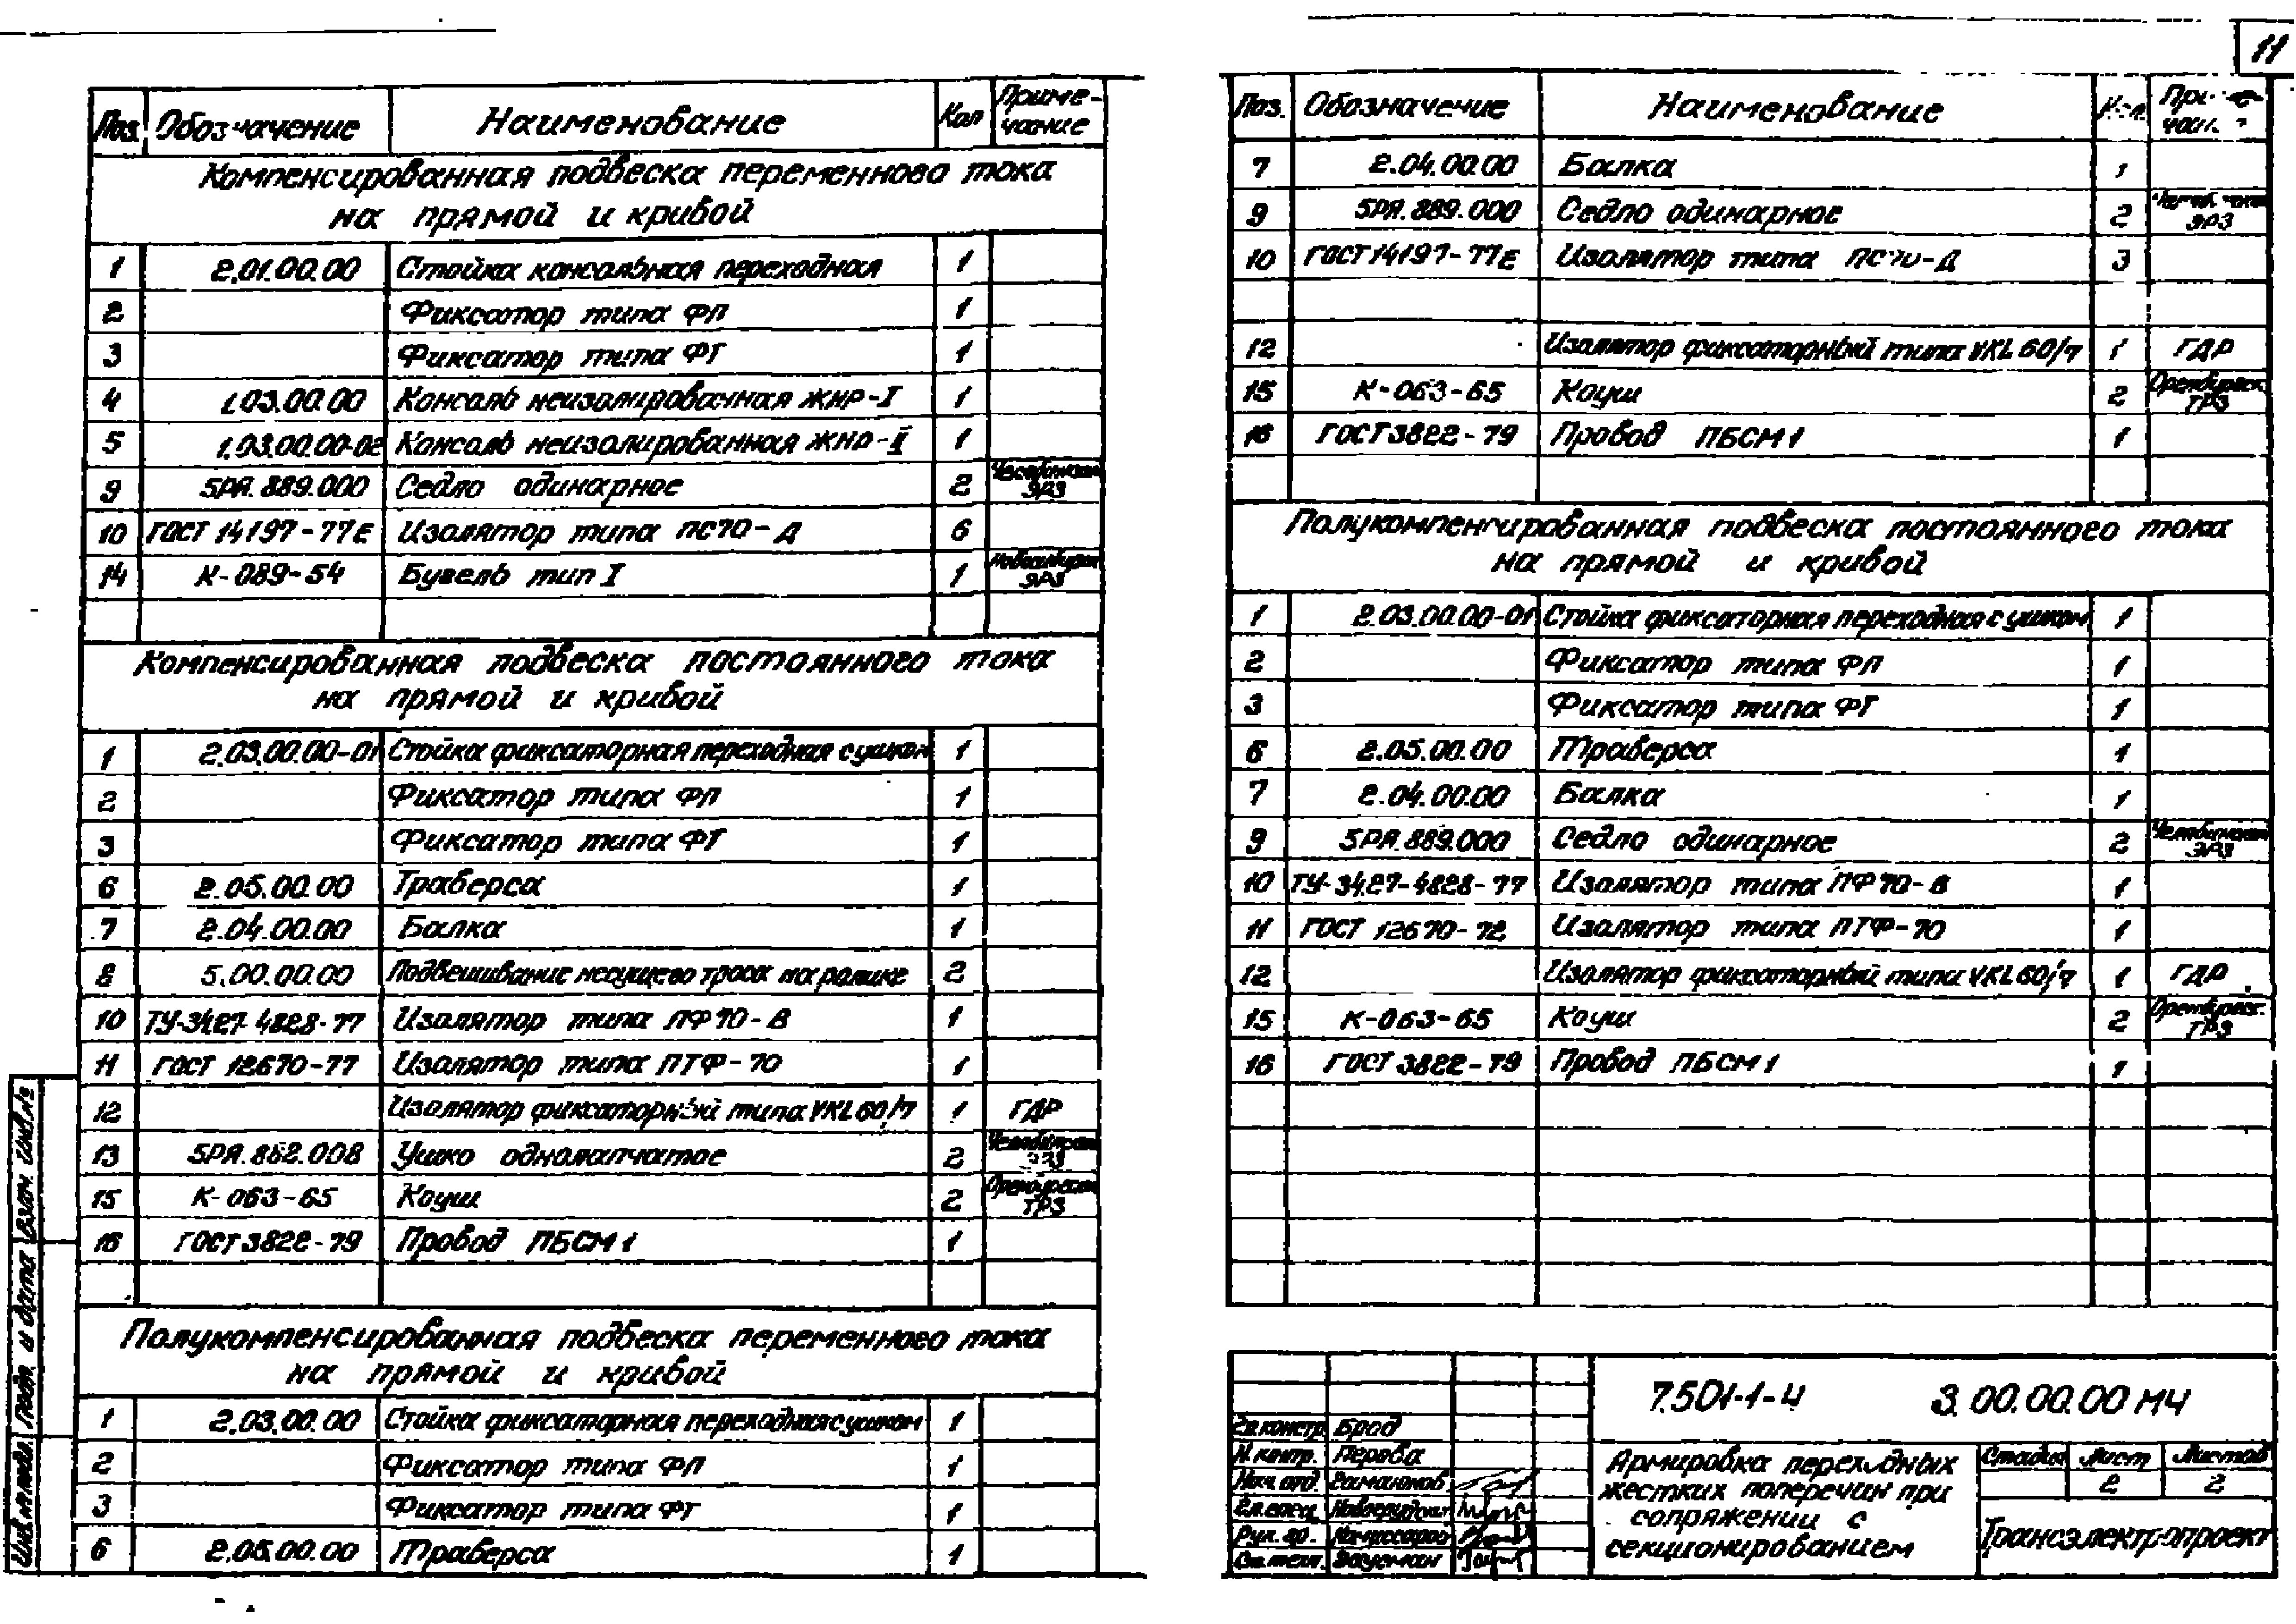 11
Поз. Обозначение Наименование Кол Приме-
чание
Компенсированная подвеска переменного тока
на прямой и кривой
1 2.01.00.00 Стойка консольная переходная 1
2 Фиксатор типа ФП 1
3 Фиксатор типа ФГ 1
4 1.03.00.00 Консоль неизолированная ЖНР-I 1
5 1.03.00.00-02 Консоль неизолированная ЖНР-II 1
9 5РЯ.889.000 Седло одинарное 2 Челябинский
ЭРЗ
10 ГОСТ 14197-77Е Изолятор типа ПС70-Д 6
14 К-089-54 Бугель тип I 1 Новосибирск
ЭРЗ
Компенсированная подвеска постоянного тока
на прямой и кривой
1 2.03.00.00-01 Стойка фиксаторная переходная с ушком 1
2 Фиксатор типа ФП 1
3 Фиксатор типа ФГ 1
6 2.05.00.00 Траверса 1
7 2.04.00.00 Балка 1
8 5.00.00.00 Подвешивание несущего троса на ролике 2
10 ТУ-3427-4828-77 Изолятор типа ПФ70-В 1
11 ГОСТ 12670-77 Изолятор типа ПТФ-70 1
12 Изолятор фиксаторный типа VKL 60/7 1 ГДР
13 5РЯ.862.008 Ушко однолапчатое 2 Челябинский
ЭРЗ
15 К-063-65 Коуш 2 Оренбургский
ТРЗ
16 ГОСТ 3822-79 Провод ПБСМ1 1
Полукомпенсированная подвеска переменного тока
на прямой и кривой
1 2.03.00.00 Стойка фиксаторная переходная с ушком 1
2 Фиксатор типа ФП 1
3 Фиксатор типа ФГ 1
6 2.05.00.00 Траверса 1
Инв.№ подл. Подп. и дата Взам. инв.№
Поз. Обозначение Наименование Кол. Приме-
чание
7 2.04.00.00 Балка 1
9 5РЯ.889.000 Седло одинарное 2
ЭРЗ
10 ГОСТ 14197-77Е Изолятор типа ПС70-Д 3
12 Изолятор фиксаторный типа VKL 60/7 1 ГДР
15 К-063-65 Коуш 2 Оренбургск.
ТРЗ
16 ГОСТ 3822-79 Провод ПБСМ1 1
Полукомпенсированная подвеска постоянного тока
на прямой и кривой
1 2.03.00.00-01 Стойка фиксаторная переходная с ушком 1
2 Фиксатор типа ФП 1
3 Фиксатор типа ФГ 1
6 2.05.00.00 Траверса 1
7 2.04.00.00 Балка 1
9 5РЯ.889.000 Седло одинарное 2 Челябинский
ЭРЗ
10 ТУ-34.27-4828-77 Изолятор типа ПФ70-В 1
11 ГОСТ 12670-72 Изолятор типа ПТФ-70 1
12 Изолятор фиксаторный типа VKL 60/7 1 ГДР
15 К-063-65 Коуш 2 Оренбургс.
ТРЗ
16 ГОСТ 3822-79 Провод ПБСМ1 1
7.501-1-4 3.00.00.00 МЧ
Гл.констр. Брод
Н.контр. Перова
Нач.отд.
Гл.спец.
Рук. гр.
Ст.техн. Заусман
Армировка переходных
жестких поперечин при
сопряжении с
секционированием
Стадия Лист Листов
2 2
Трансэлектропроект